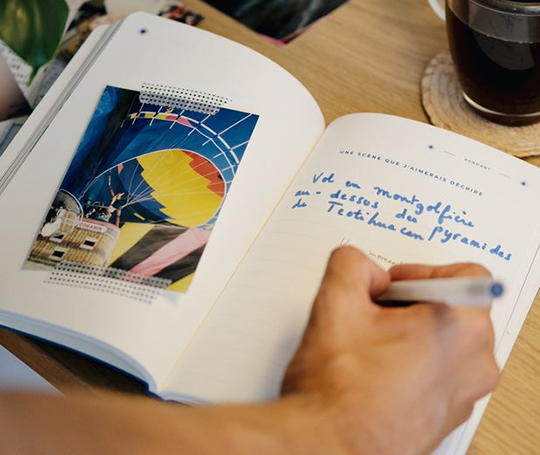 PENDANT
UNE SCÈNE QUE J'AIMERAIS DÉCRIRE
Vol en montgolfière
au-dessus des
de Teotihuacan Pyramides